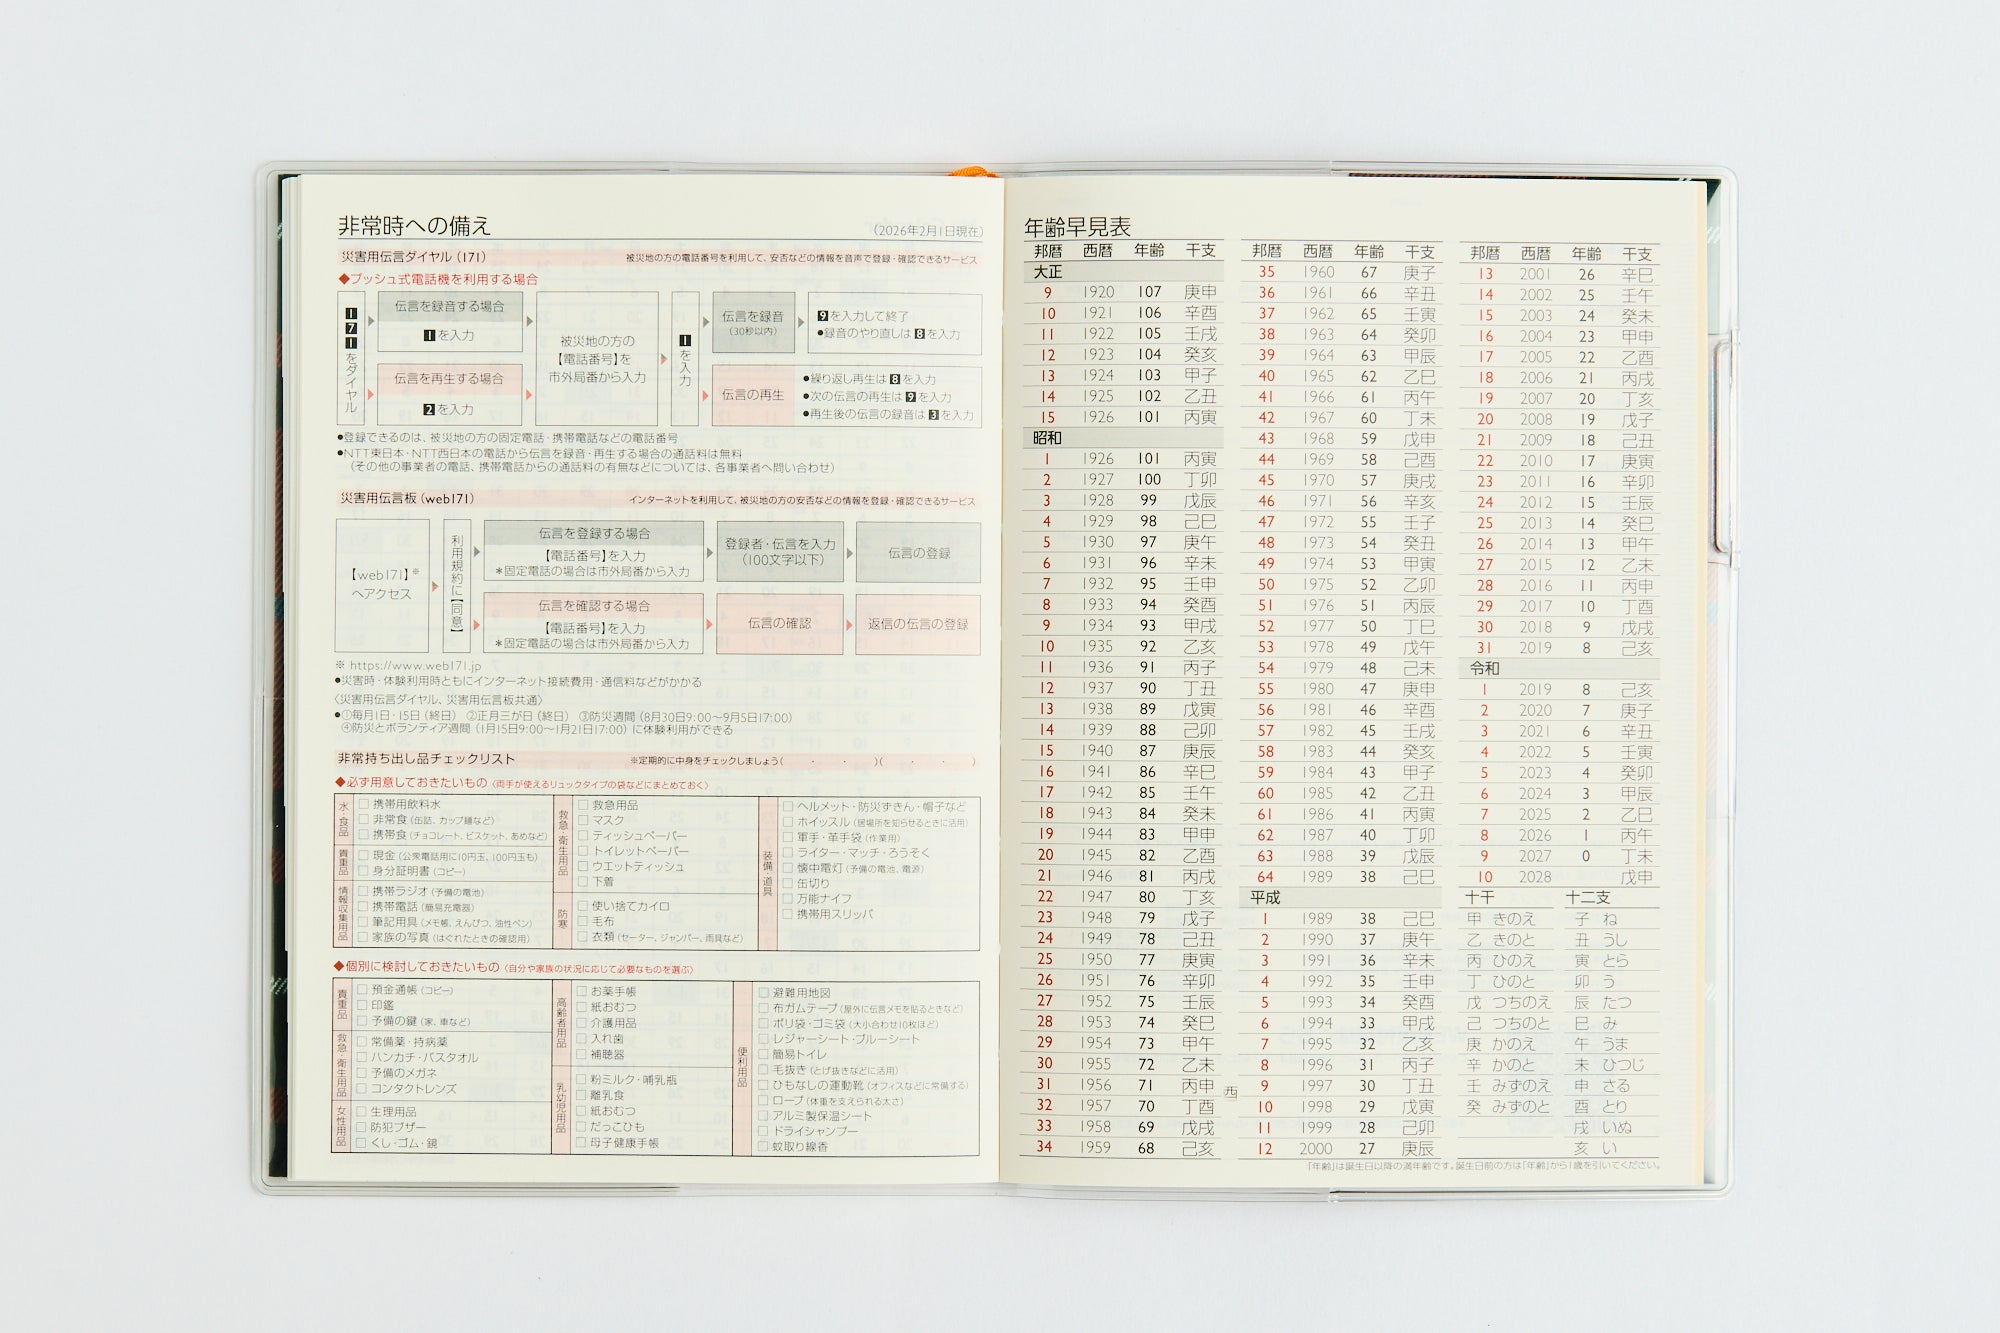 非常時への備え
(2026年2月1日現在)
災害用伝言ダイヤル(171)
被災地の方の電話番号を利用して、安否などの情報を音声で登録・確認できるサービス
◆プッシュ式電話機を利用する場合
171をダイヤル
伝言を録音する場合
1を入力
伝言を再生する場合
2を入力
被災地の方の
【電話番号】を
市外局番から入力
1を入力
伝言を録音
(30秒以内)
9を入力して終了
●録音のやり直しは8を入力
伝言の再生
●繰り返し再生は8を入力
●次の伝言の再生は9を入力
●再生後の伝言の録音は3を入力
●登録できるのは、被災地の方の固定電話・携帯電話などの電話番号
●NTT東日本・NTT西日本の電話から伝言を録音・再生する場合の通話料は無料
(その他の事業者の電話、携帯電話からの通話料の有無などについては、各事業者へ問い合わせ)
災害用伝言板(web171)
インターネットを利用して、被災地の方の安否などの情報を登録・確認できるサービス
【web171】※
へアクセス
利用規約に【同意】
伝言を登録する場合
【電話番号】を入力
*固定電話の場合は市外局番から入力
登録者・伝言を入力
(100文字以下)
伝言の登録
伝言を確認する場合
【電話番号】を入力
*固定電話の場合は市外局番から入力
伝言の確認
返信の伝言の登録
※ https://www.web171.jp
●災害時・体験利用時ともにインターネット接続費用・通信料などがかかる
〈災害用伝言ダイヤル、災害用伝言板共通〉
●①毎月1日・15日(終日) ②正月三が日(終日) ③防災週間(8月30日9:00〜9月5日17:00)
④防災とボランティア週間(1月15日9:00〜1月21日17:00)に体験利用ができる
非常持ち出し品チェックリスト
※定期的に中身をチェックしましょう( ・ ・ )( ・ ・ )
◆必ず用意しておきたいもの(両手が使えるリュックタイプの袋などにまとめておく)
水・食品
□携帯用飲料水
□非常食(缶詰、カップ麺など)
□携帯食(チョコレート、ビスケット、あめなど)
貴重品
□現金(公衆電話用に10円玉、100円玉も)
□身分証明書(コピー)
情報収集用品
□携帯ラジオ(予備の電池)
□携帯電話(簡易充電器)
□筆記用具(メモ帳、えんぴつ、油性ペン)
□家族の写真(はぐれたときの確認用)
救急・衛生用品
□救急用品
□マスク
□ティッシュペーパー
□トイレットペーパー
□ウエットティッシュ
□下着
防寒
□使い捨てカイロ
□毛布
□衣類(セーター、ジャンパー、雨具など)
装備・道具
□ヘルメット・防災ずきん・帽子など
□ホイッスル(居場所を知らせるときに活用)
□軍手・革手袋(作業用)
□ライター・マッチ・ろうそく
□懐中電灯(予備の電池、電源)
□缶切り
□万能ナイフ
□携帯用スリッパ
◆個別に検討しておきたいもの(自分や家族の状況に応じて必要なものを選ぶ)
貴重品
□預金通帳(コピー)
□印鑑
□予備の鍵(家、車など)
救急・衛生用品
□常備薬・持病薬
□ハンカチ・バスタオル
□予備のメガネ
□コンタクトレンズ
女性用品
□生理用品
□防犯ブザー
□くし・ゴム・鏡
高齢者用品
□お薬手帳
□紙おむつ
□介護用品
□入れ歯
□補聴器
乳幼児用品
□粉ミルク・哺乳瓶
□離乳食
□紙おむつ
□だっこひも
□母子健康手帳
便利用品
□避難用地図
□布ガムテープ(屋外に伝言メモを貼るときなど)
□ポリ袋・ゴミ袋(大小合わせ10枚ほど)
□レジャーシート・ブルーシート
□簡易トイレ
□毛抜き(とげ抜きなどに活用)
□ひもなしの運動靴(オフィスなどに常備する)
□ロープ(体重を支えられる太さ)
□アルミ製保温シート
□ドライシャンプー
□蚊取り線香
年齢早見表
邦暦 西暦 年齢 干支
大正
9 1920 107 庚申
10 1921 106 辛酉
11 1922 105 壬戌
12 1923 104 癸亥
13 1924 103 甲子
14 1925 102 乙丑
15 1926 101 丙寅
昭和
1 1926 101 丙寅
2 1927 100 丁卯
3 1928 99 戊辰
4 1929 98 己巳
5 1930 97 庚午
6 1931 96 辛未
7 1932 95 壬申
8 1933 94 癸酉
9 1934 93 甲戌
10 1935 92 乙亥
11 1936 91 丙子
12 1937 90 丁丑
13 1938 89 戊寅
14 1939 88 己卯
15 1940 87 庚辰
16 1941 86 辛巳
17 1942 85 壬午
18 1943 84 癸未
19 1944 83 甲申
20 1945 82 乙酉
21 1946 81 丙戌
22 1947 80 丁亥
23 1948 79 戊子
24 1949 78 己丑
25 1950 77 庚寅
26 1951 76 辛卯
27 1952 75 壬辰
28 1953 74 癸巳
29 1954 73 甲午
30 1955 72 乙未
31 1956 71 丙申
32 1957 70 丁酉
33 1958 69 戊戌
34 1959 68 己亥
西
邦暦 西暦 年齢 干支
35 1960 67 庚子
36 1961 66 辛丑
37 1962 65 壬寅
38 1963 64 癸卯
39 1964 63 甲辰
40 1965 62 乙巳
41 1966 61 丙午
42 1967 60 丁未
43 1968 59 戊申
44 1969 58 己酉
45 1970 57 庚戌
46 1971 56 辛亥
47 1972 55 壬子
48 1973 54 癸丑
49 1974 53 甲寅
50 1975 52 乙卯
51 1976 51 丙辰
52 1977 50 丁巳
53 1978 49 戊午
54 1979 48 己未
55 1980 47 庚申
56 1981 46 辛酉
57 1982 45 壬戌
58 1983 44 癸亥
59 1984 43 甲子
60 1985 42 乙丑
61 1986 41 丙寅
62 1987 40 丁卯
63 1988 39 戊辰
64 1989 38 己巳
平成
1 1989 38 己巳
2 1990 37 庚午
3 1991 36 辛未
4 1992 35 壬申
5 1993 34 癸酉
6 1994 33 甲戌
7 1995 32 乙亥
8 1996 31 丙子
9 1997 30 丁丑
10 1998 29 戊寅
11 1999 28 己卯
12 2000 27 庚辰
邦暦 西暦 年齢 干支
13 2001 26 辛巳
14 2002 25 壬午
15 2003 24 癸未
16 2004 23 甲申
17 2005 22 乙酉
18 2006 21 丙戌
19 2007 20 丁亥
20 2008 19 戊子
21 2009 18 己丑
22 2010 17 庚寅
23 2011 16 辛卯
24 2012 15 壬辰
25 2013 14 癸巳
26 2014 13 甲午
27 2015 12 乙未
28 2016 11 丙申
29 2017 10 丁酉
30 2018 9 戊戌
31 2019 8 己亥
令和
1 2019 8 己亥
2 2020 7 庚子
3 2021 6 辛丑
4 2022 5 壬寅
5 2023 4 癸卯
6 2024 3 甲辰
7 2025 2 乙巳
8 2026 1 丙午
9 2027 0 丁未
10 2028 戊申
十干 十二支
甲 きのえ 子 ね
乙 きのと 丑 うし
丙 ひのえ 寅 とら
丁 ひのと 卯 う
戊 つちのえ 辰 たつ
己 つちのと 巳 み
庚 かのえ 午 うま
辛 かのと 未 ひつじ
壬 みずのえ 申 さる
癸 みずのと 酉 とり
戌 いぬ
亥 い
「年齢」は誕生日以降の満年齢です。誕生日前の方は「年齢」から1歳を引いてください。